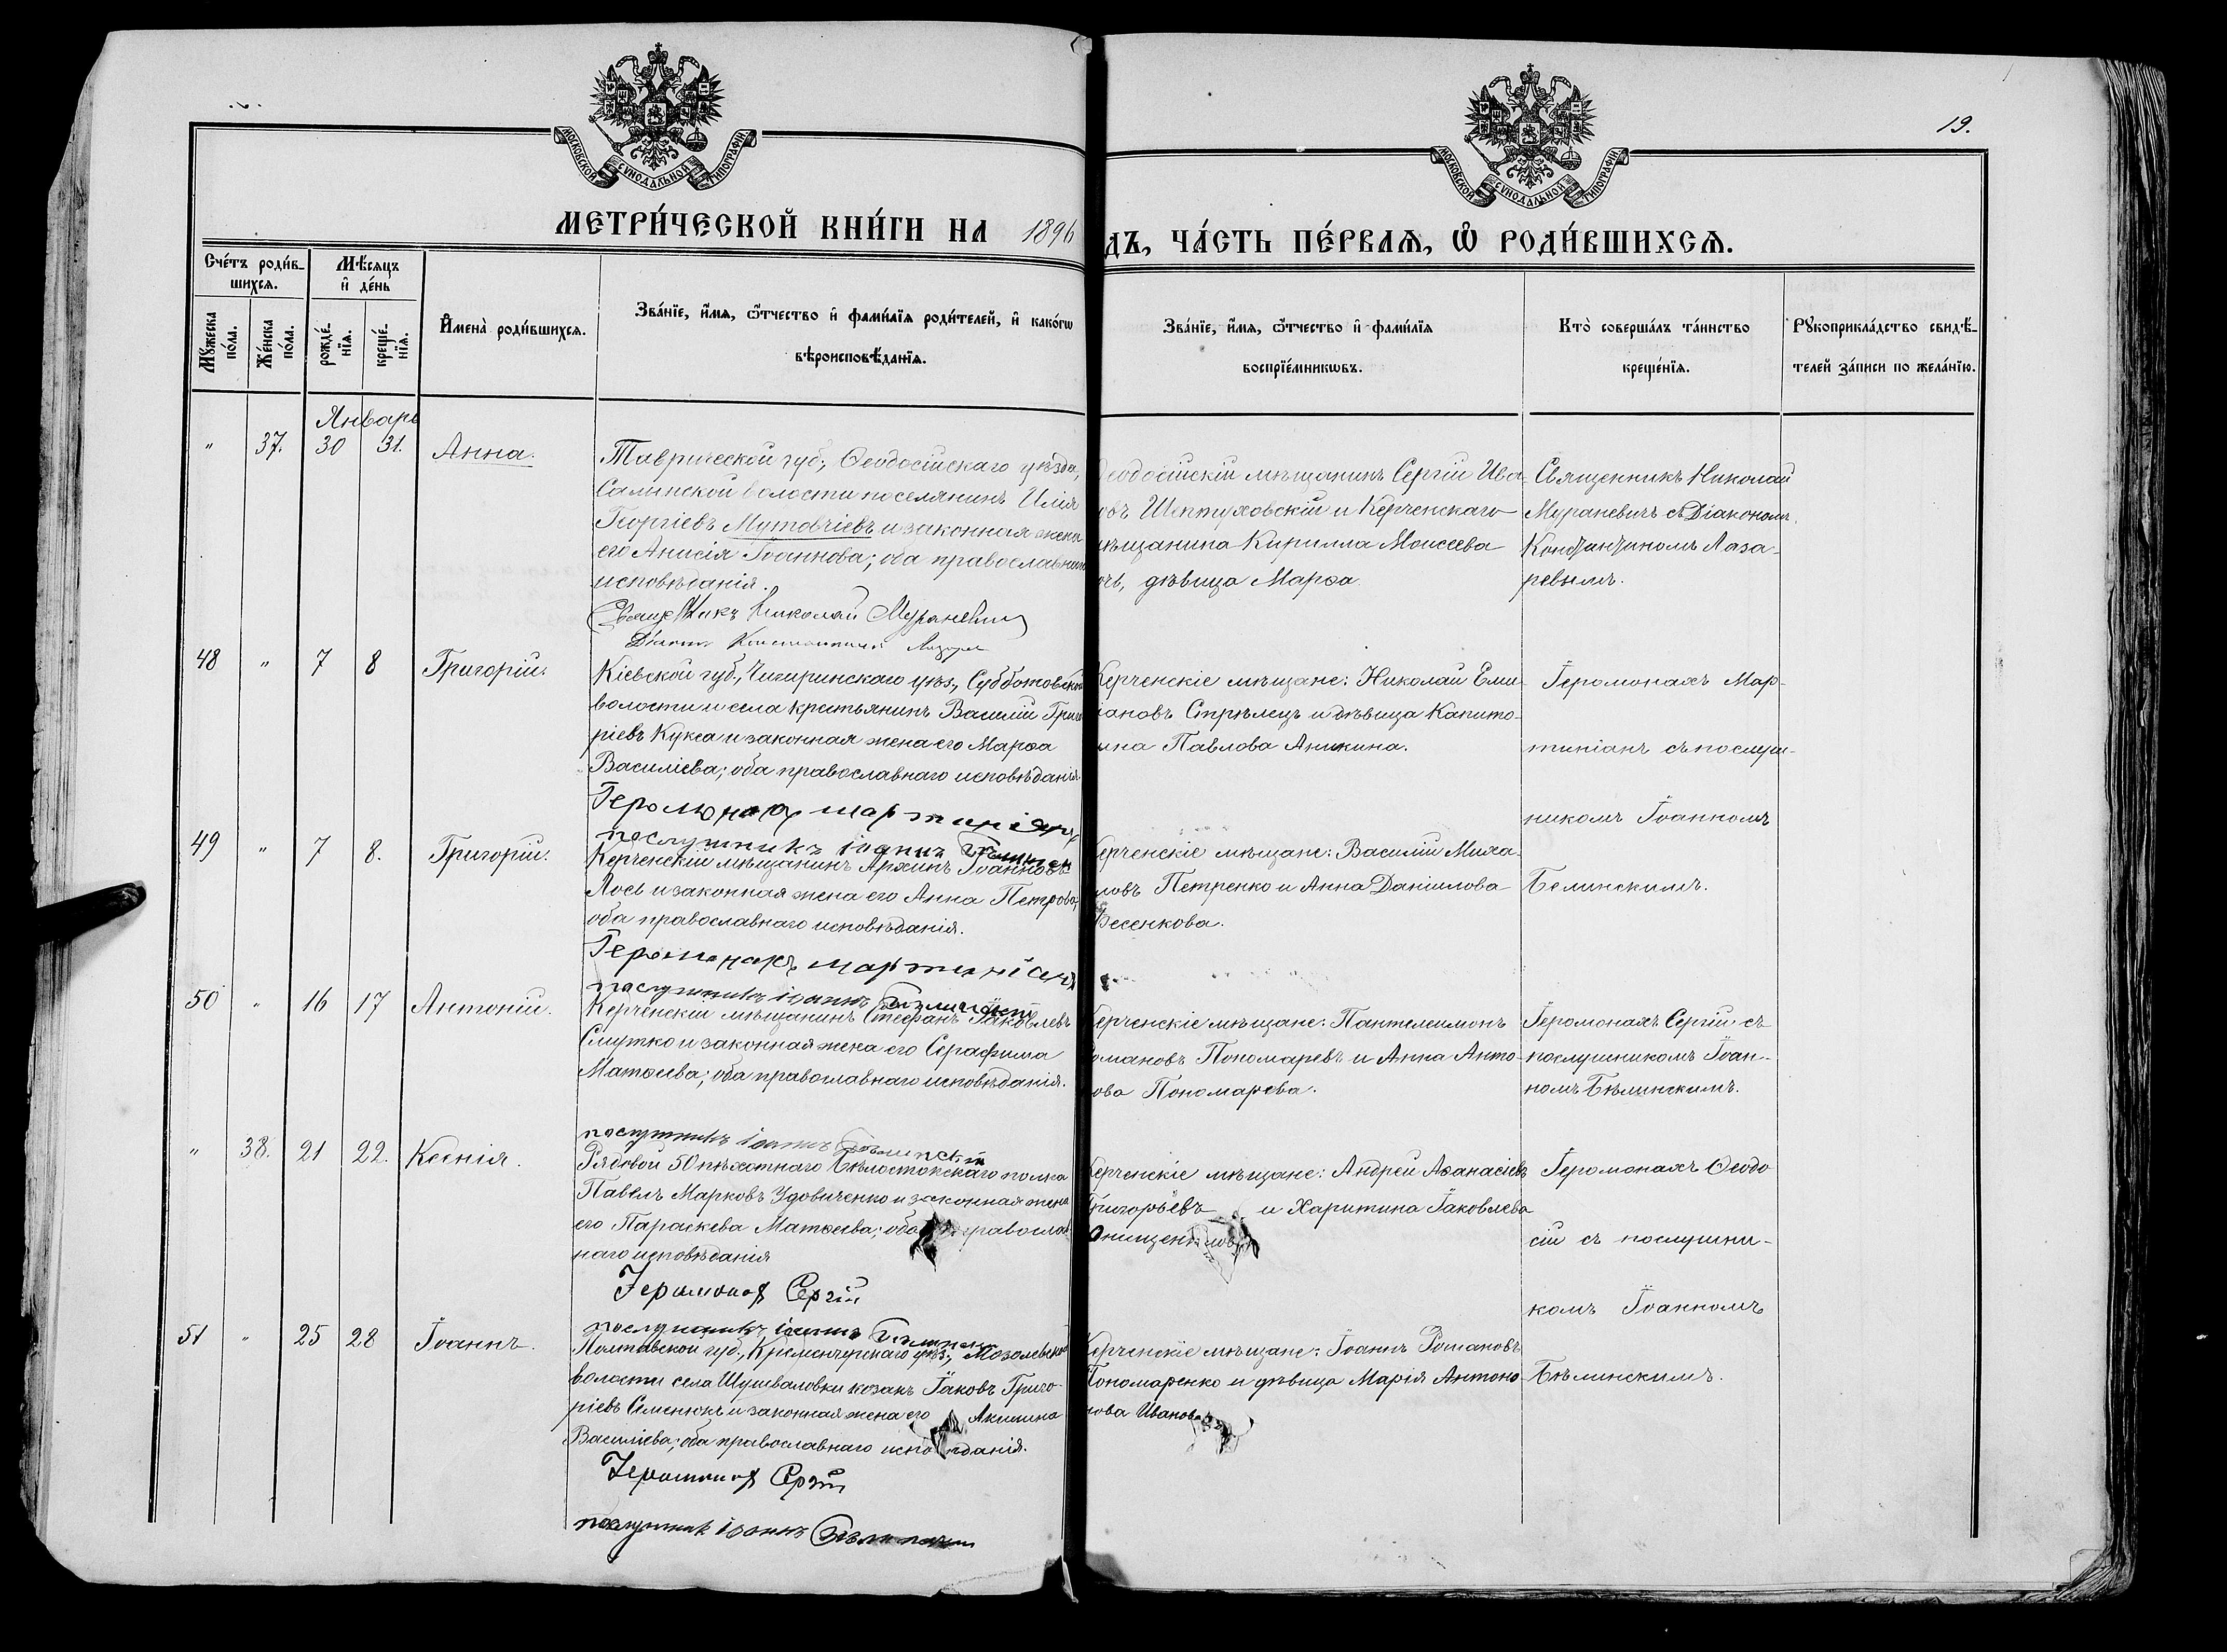 19.
МОСКОВСКОЙ СѴНОДАЛЬНОЙ ТИПОГРАФІИ
МОСКОВСКОЙ СѴНОДАЛЬНОЙ ТИПОГРАФІИ
МЕТРИ́ЧЕСКОЙ КНИ́ГИ НА 1896
ДЪ, ЧА́СТЬ ПЕ́РВАѦ, Ѡ҆ РОДИ́ВШИХСѦ.
Сче́тъ роди́в-
шихсѧ.
Мѣ́сѧцъ
и҆ де́нь
Мꙋ́жеска
по́ла.
Же́нска
по́ла.
рожде́-
нїѧ.
креще́-
нїѧ.
И҆мена̀ роди́вшихсѧ.
Зва́нїе, и҆́мѧ, ѻ҆́тчество и҆ фами́лїѧ роди́телей, и҆ како́гѡ
вѣроисповѣ́данїѧ.
Зва́нїе, и҆́мѧ, ѻ҆́тчество и҆ фами́лїѧ
воспрїе́мникѡвъ.
Кто̀ соверша́лъ та́инство
креще́нїѧ.
Рꙋкоприкла́дство свидѣ́-
телей за́писи по жела́нїю.
Январь
" 37. 30 31. Анна.
Таврической губ., Ѳеодосійскаго уѣзда,
Салынской волости поселянинъ Илія
Георгіевъ Мутовчіевъ и законная жена
его Анисія Іоаннова; оба православнаго
исповѣданія.
Священникъ Николай Мураневич
Діаконъ Константинъ Лазаре
еодосійскій мѣщанинъ Сергій Ива-
овъ Шептуховскій и Керченскаго
мѣщанина Кирилла Моисеева
очь, дѣвица Марѳа.
Священникъ Николай
Мураневичъ съ Діакономъ
Константиномъ Лаза-
ревымъ.
48 " 7 8 Григорій.
Кіевской губ., Чигиринскаго уѣз., Субботовской
волости и села крестьянинъ Василій Григо
ріевъ Кукса и законная жена его Марѳа
Василіева; оба православнаго исповѣданія
Іеромонах мартиніанъ
послушникъ іоаннъ
Керченскіе мѣщане: Николай Еми-
іановъ Стрѣлецъ и дѣвица Капито-
ина Павлова Аникина.
Іеромонахъ Мар-
тиніанъ съ послуш-
никомъ Іоанномъ
Белинскимъ.
49 " 7 8. Григорій.
Керченскій мѣщанинъ Архипъ Іоанновъ
Лось и законная жена его Анна Петрова;
оба православнаго исповѣданія.
Іеромонахъ мартиніанъ
послушникъ іоаннъ Бѣлинскій
ерченскіе мѣщане: Василій Миха-
ловъ Петренко и Анна Даніилова
Весенкова.
50 " 16 17 Антоній.
Керченскій мѣщанинъ Стефанъ Іаковлевъ
Смутко и законная жена его Серафима
Матѳеева; оба православнаго исповѣданія.
послушникъ іоаннъ Бѣлинскій
ерченскіе мѣщане: Пантелеимонъ
омановъ Пономаревъ и Анна Анто-
ова Пономарева.
Іеромонахъ Сергій съ
послушникомъ Іоан-
номъ Бѣлинскимъ.
" 38. 21 22. Ксенія.
Рядовой 50 пѣхотнаго Бѣлостокскаго полка
Павелъ Марковъ Удовиченко и законная жена
его Параскева Матѳеева; оба православ
наго исповѣданія
Іеромонах Сергій
послушникъ іоаннъ
ерченскіе мѣщане: Андрей Аѳанасіевъ
Григорьевъ и Харитина Іаковлева
Іеромонахъ Ѳеодо
сій съ послушни-
комъ Іоанномъ
Бѣлинскимъ.
51 " 25 28 Іоаннъ.
Полтавской губ., Кременчугскаго уѣз.,
волости села Шушваловки козакъ Іаковъ Григо-
ріевъ Семенюкъ и законная жена его Акилина
Василіева; оба православнаго исповѣданія.
Іеромонах Сергій
послушник іоаннъ
Керченскіе мѣщане: Іоаннъ Романовъ
Пономаренко и дѣвица Марія Антоно-
нова Иванова